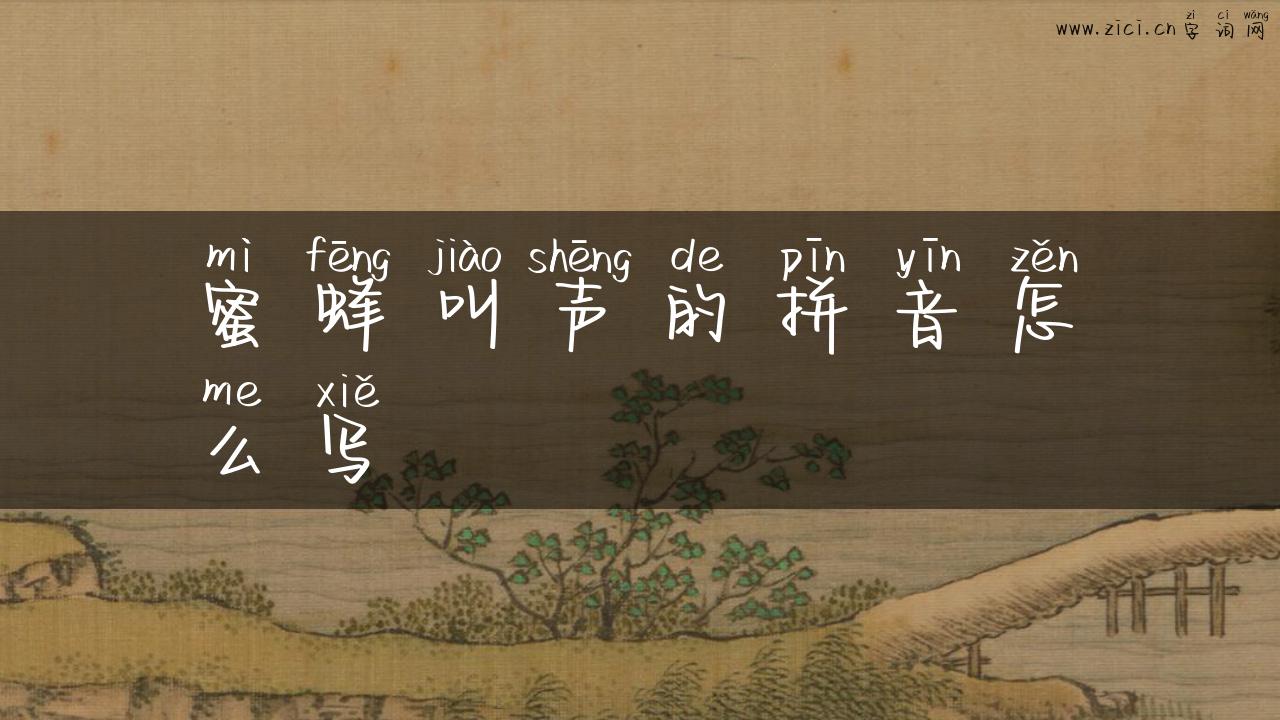 zì cí wǎng
www.zici.cn 字词网
mì fēng jiào shēng de pīn yīn zěn
蜜蜂叫声的拼音怎
me xiě
么写